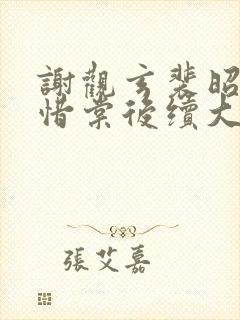 謝觀玄裴昭
惜棠後續大
張艾嘉